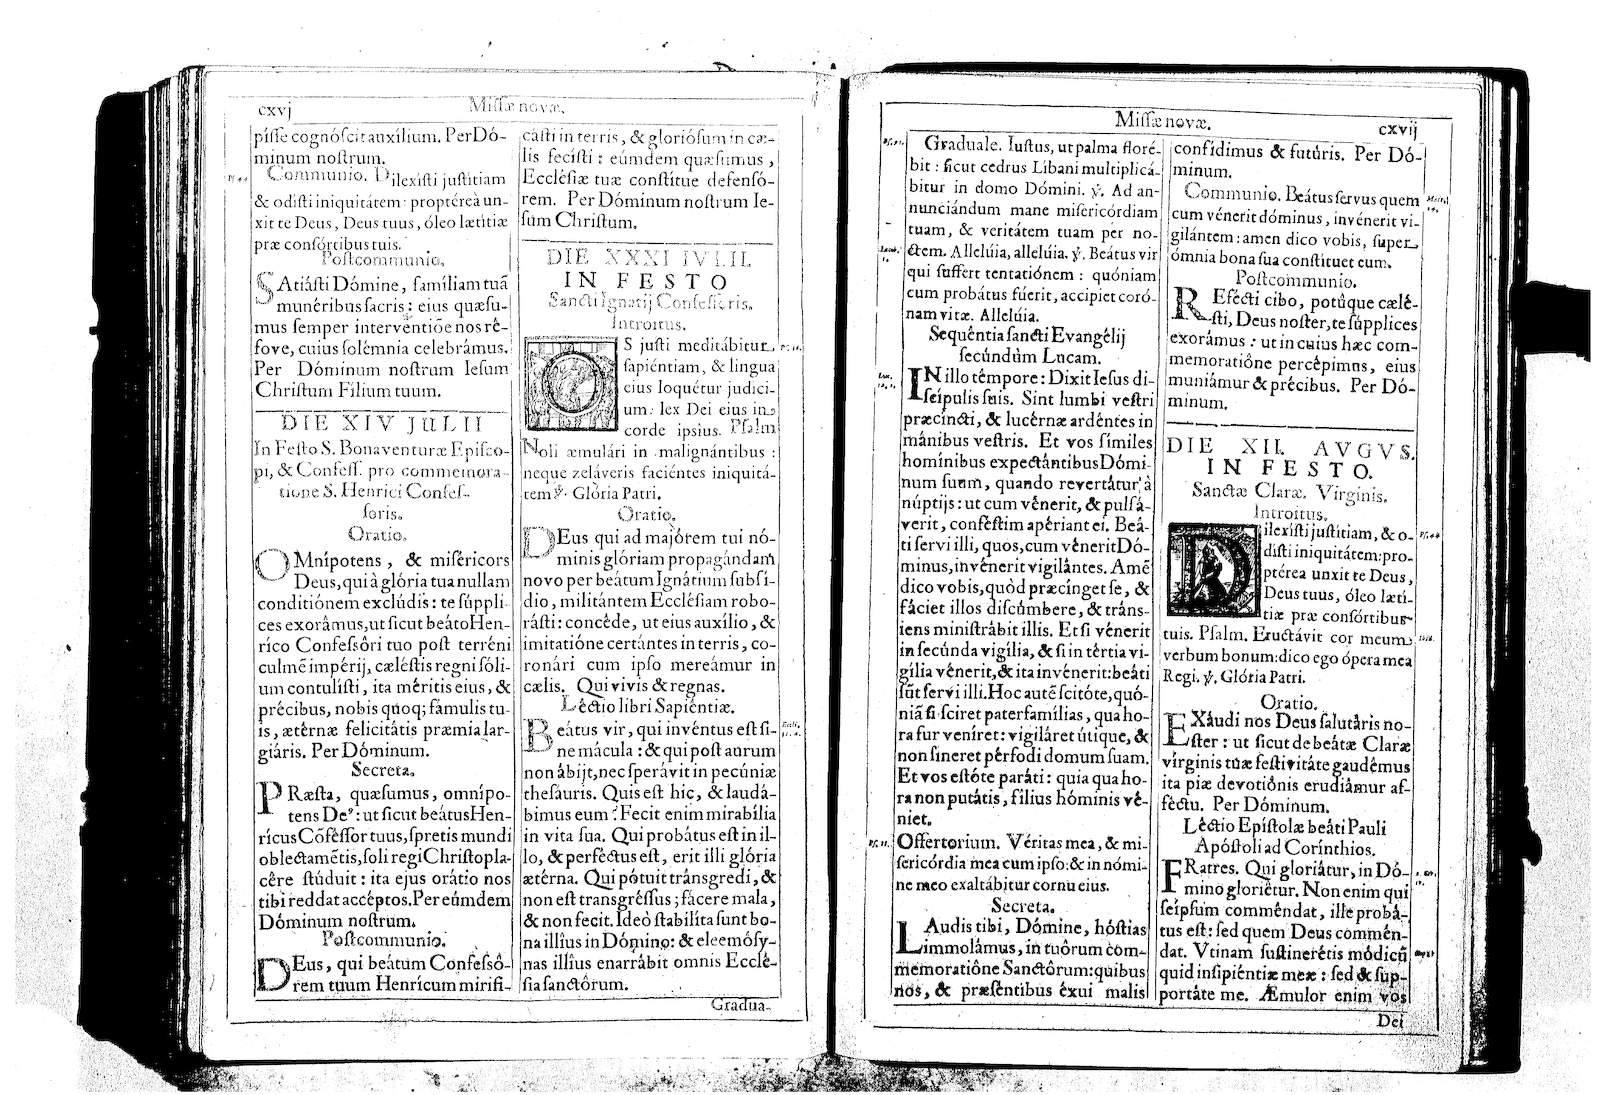 cxvj
Missæ novæ.
pisse cognóscit auxílium. Per Dó-
minum nostrum.
Communio. Dilexísti justitiam
& odisti iniquitátem: proptéreà un-
xit te Deus, Deus tuus, óleo lætítiæ
præ consórtibus tuis.
Postcommunio.
SAtiásti Dómine, famíliam tuā
munéribus sacris: eius quæsu-
mus semper interventiōe nos ré-
fove, cuius solémnia celebrámus.
Per Dóminum nostrum Iesum
Christum Fílium tuum.
DIE XIV JULII
In Festo S. Bonaventuræ Episco-
pi, & Confess. pro commemora-
tione S. Henrici Confes-
soris.
Oratio.
OMnípotens, & miséricors
Deus, qui à glória tua nullam
conditiónem exclúdis: te súppli-
ces exorâmus, ut sicut beáto Hen-
ríco Confessôri tuo post terréni
culmē impérij, cæléstis regni sóli-
um contulísti, ita méritis eius, &
précibus, nobis quoq; fámulis tu-
is, ætérnæ felicitátis præmia lar-
giáris. Per Dóminum.
Secreta.
PRæsta, quæsumus, omnípo-
tens Deꝰ: ut sicut beátus Hen-
rícus Cōféssor tuus, spretis mundi
oblectamētis, soli regi Christo pla-
cêre stúduit: ita ejus orátio nos
tibi reddat accéptos. Per eúmdem
Dóminum nostrum.
Postcommunio.
DEus, qui beátum Confessô-
rem tuum Henrícum mirifi-
cásti in terris, & gloriósum in cæ-
lis fecísti: eúmdem quæsumus,
Ecclésiæ tuæ constítue defensó-
rem. Per Dóminum nostrum Ie-
sum Christum.
DIE XXXI IVLII
IN FESTO
Sancti Ignatij Confessoris.
Introitus.
OS justi meditábitur
sapiéntiam, & lingua
eius loquétur judíci-
um: lex Dei eius in
corde ipsíus. Psalm
Noli æmulári in malignántibus:
neque zeláveris faciéntes iniquitá-
tem ℣. Glória Patri.
Oratio.
DEus qui ad majórem tui nó-
minis glóriam propagándam
novo per beátum Ignátium subsí-
dio, militántem Ecclésiam robo-
rásti: concêde, ut eius auxílio, &
imitatióne certántes in terris, co-
ronári cum ipso mereámur in
cælis. Qui vivis & regnas.
Léctio libri Sapiéntiæ.
Beátus vir, qui invéntus est si-
ne mácula: & qui post aurum
non ábijt, nec sperávit in pecúniæ
thesáuris. Quis est hic, & laudá-
bimus eum? Fecit enim mirabília
in vita sua. Qui probátus est in il-
lo, & perféctus est, erit illi glória
ætérna. Qui pótuit tránsgredi, &
non est transgréssus; fácere mala,
& non fecit. Ideò stabilíta sunt bo-
na illíus in Dómino: & eleemósy-
nas illíus enarrábit omnis Ecclé-
sia sanctôrum.
Gradua-
Missæ novæ.
cxvij
Graduale. Iustus, ut palma floré-
bit: sicut cedrus Líbani multiplicá-
bitur in domo Dómini. ℣. Ad an-
nunciándum mane misericórdiam
tuam, & veritátem tuam per no-
ctem. Allelúia, allelúia. ℣. Beátus vir
qui suffert tentatiónem: quóniam
cum probátus fúerit, accípiet coró-
nam vitæ. Allelúia.
Sequêntia sancti Evangêlij
secúndùm Lucam.
IN illo témpore: Dixit Iesus di-
scípulis suis. Sint lumbi vestri
præcíncti, & lucérnæ ardéntes in
mánibus vestris. Et vos símiles
homínibus expectántibus Dómi-
num suum, quando revertátur à
núptijs: ut cum vénerit, & pulsá-
verit, conféstim apériant ei. Beá-
ti servi illi, quos, cum vénerit Dó-
minus, invénerit vigilántes. Amē
dico vobis, quòd præcínget se, &
fáciet illos discúmbere, & tráns-
iens ministrábit illis. Et si vénerit
in secúnda vigília, & si in tértia vi-
gília vênerit, & ita invénerit: beáti
sūt servi illi. Hoc autē scitóte, quó-
niā si sciret paterfamílias, qua ho-
ra fur veníret: vigiláret útique, &
non síneret pérfodi domum suam.
Et vos estóte paráti: quia qua ho-
ra non putátis, fílius hóminis vé-
niet.
Offertorium. Véritas mea, & mi-
sericórdia mea cum ipso: & in nómi-
ne meo exaltábitur cornu eius.
Secreta.
LAudis tibi, Dómine, hóstias
immolámus, in tuôrum com-
memoratióne Sanctôrum: quibus
nos, & præséntibus éxui malis
confídimus & futúris. Per Dó-
minum.
Communio. Beátus servus quem
cum vénerit dóminus, invénerit vi-
gilántem: amen dico vobis, super
ómnia bona sua constítuet eum.
Postcommunio.
REfécti cibo, potúque cælé-
sti, Deus noster, te súpplices
exorámus: ut in cuius hæc com-
memoratióne percêpimus, eius
muniámur & précibus. Per Dó-
minum.
DIE XII. AVGVS.
IN FESTO.
Sanctæ Claræ. Virginis.
Introitus.
Dilexísti justítiam, & o-
dísti iniquitátem: pro-
ptérea unxit te Deus,
Deus tuus, óleo lætí-
tiæ præ consórtibus
tuis. Psalm. Eructávit cor meum
verbum bonum: dico ego ópera mea
Regi. ℣. Glória Patri.
Oratio.
EXáudi nos Deus salutáris no-
ster: ut sicut de beátæ Claræ
vírginis tuæ festivitáte gaudémus
ita piæ devotiónis erudiámur af-
féctu. Per Dóminum.
Léctio Epístolæ beáti Pauli
Apóstoli ad Corínthios.
FRatres. Qui gloriátur, in Dó-
mino gloriétur. Non enim qui
seípsum comméndat, ille probá-
tus est: sed quem Deus commén-
dat. Vtinam sustinerétis módicū
quid insipiéntiæ meæ: sed & sup-
portáte me. Æmulor enim vos
Dei